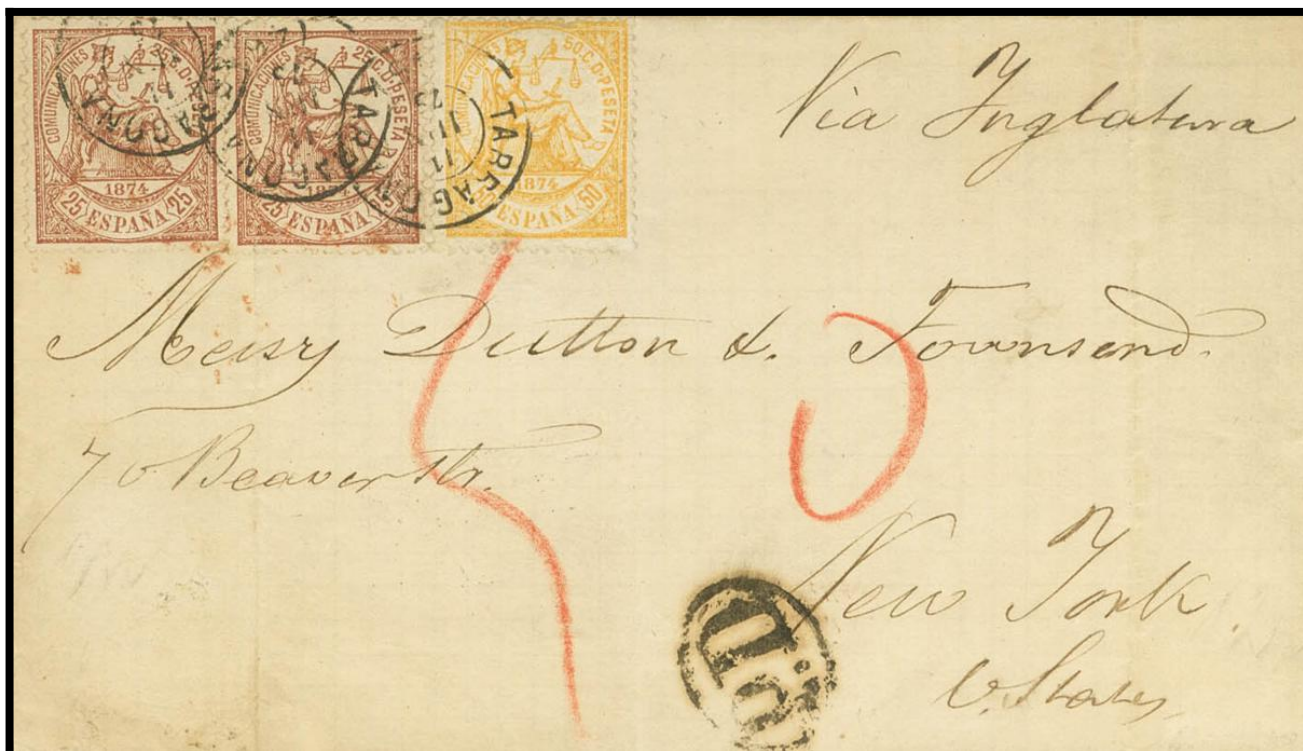 COMUNICACIONES 25 C. DE PESETA
1874
25 ESPAÑA 25
COMUNICACIONES 25 C. DE PESETA
1874
25 ESPAÑA 25
COMUNICACIONES 50 C. DE PESETA
1874
50 ESPAÑA 50
TARRAGONA
TARRAGONA
TARRAGONA
Via Inglaterra
Messrs Dutton & Townsend.
70 Beaver str.
New York
U. States
P.D.